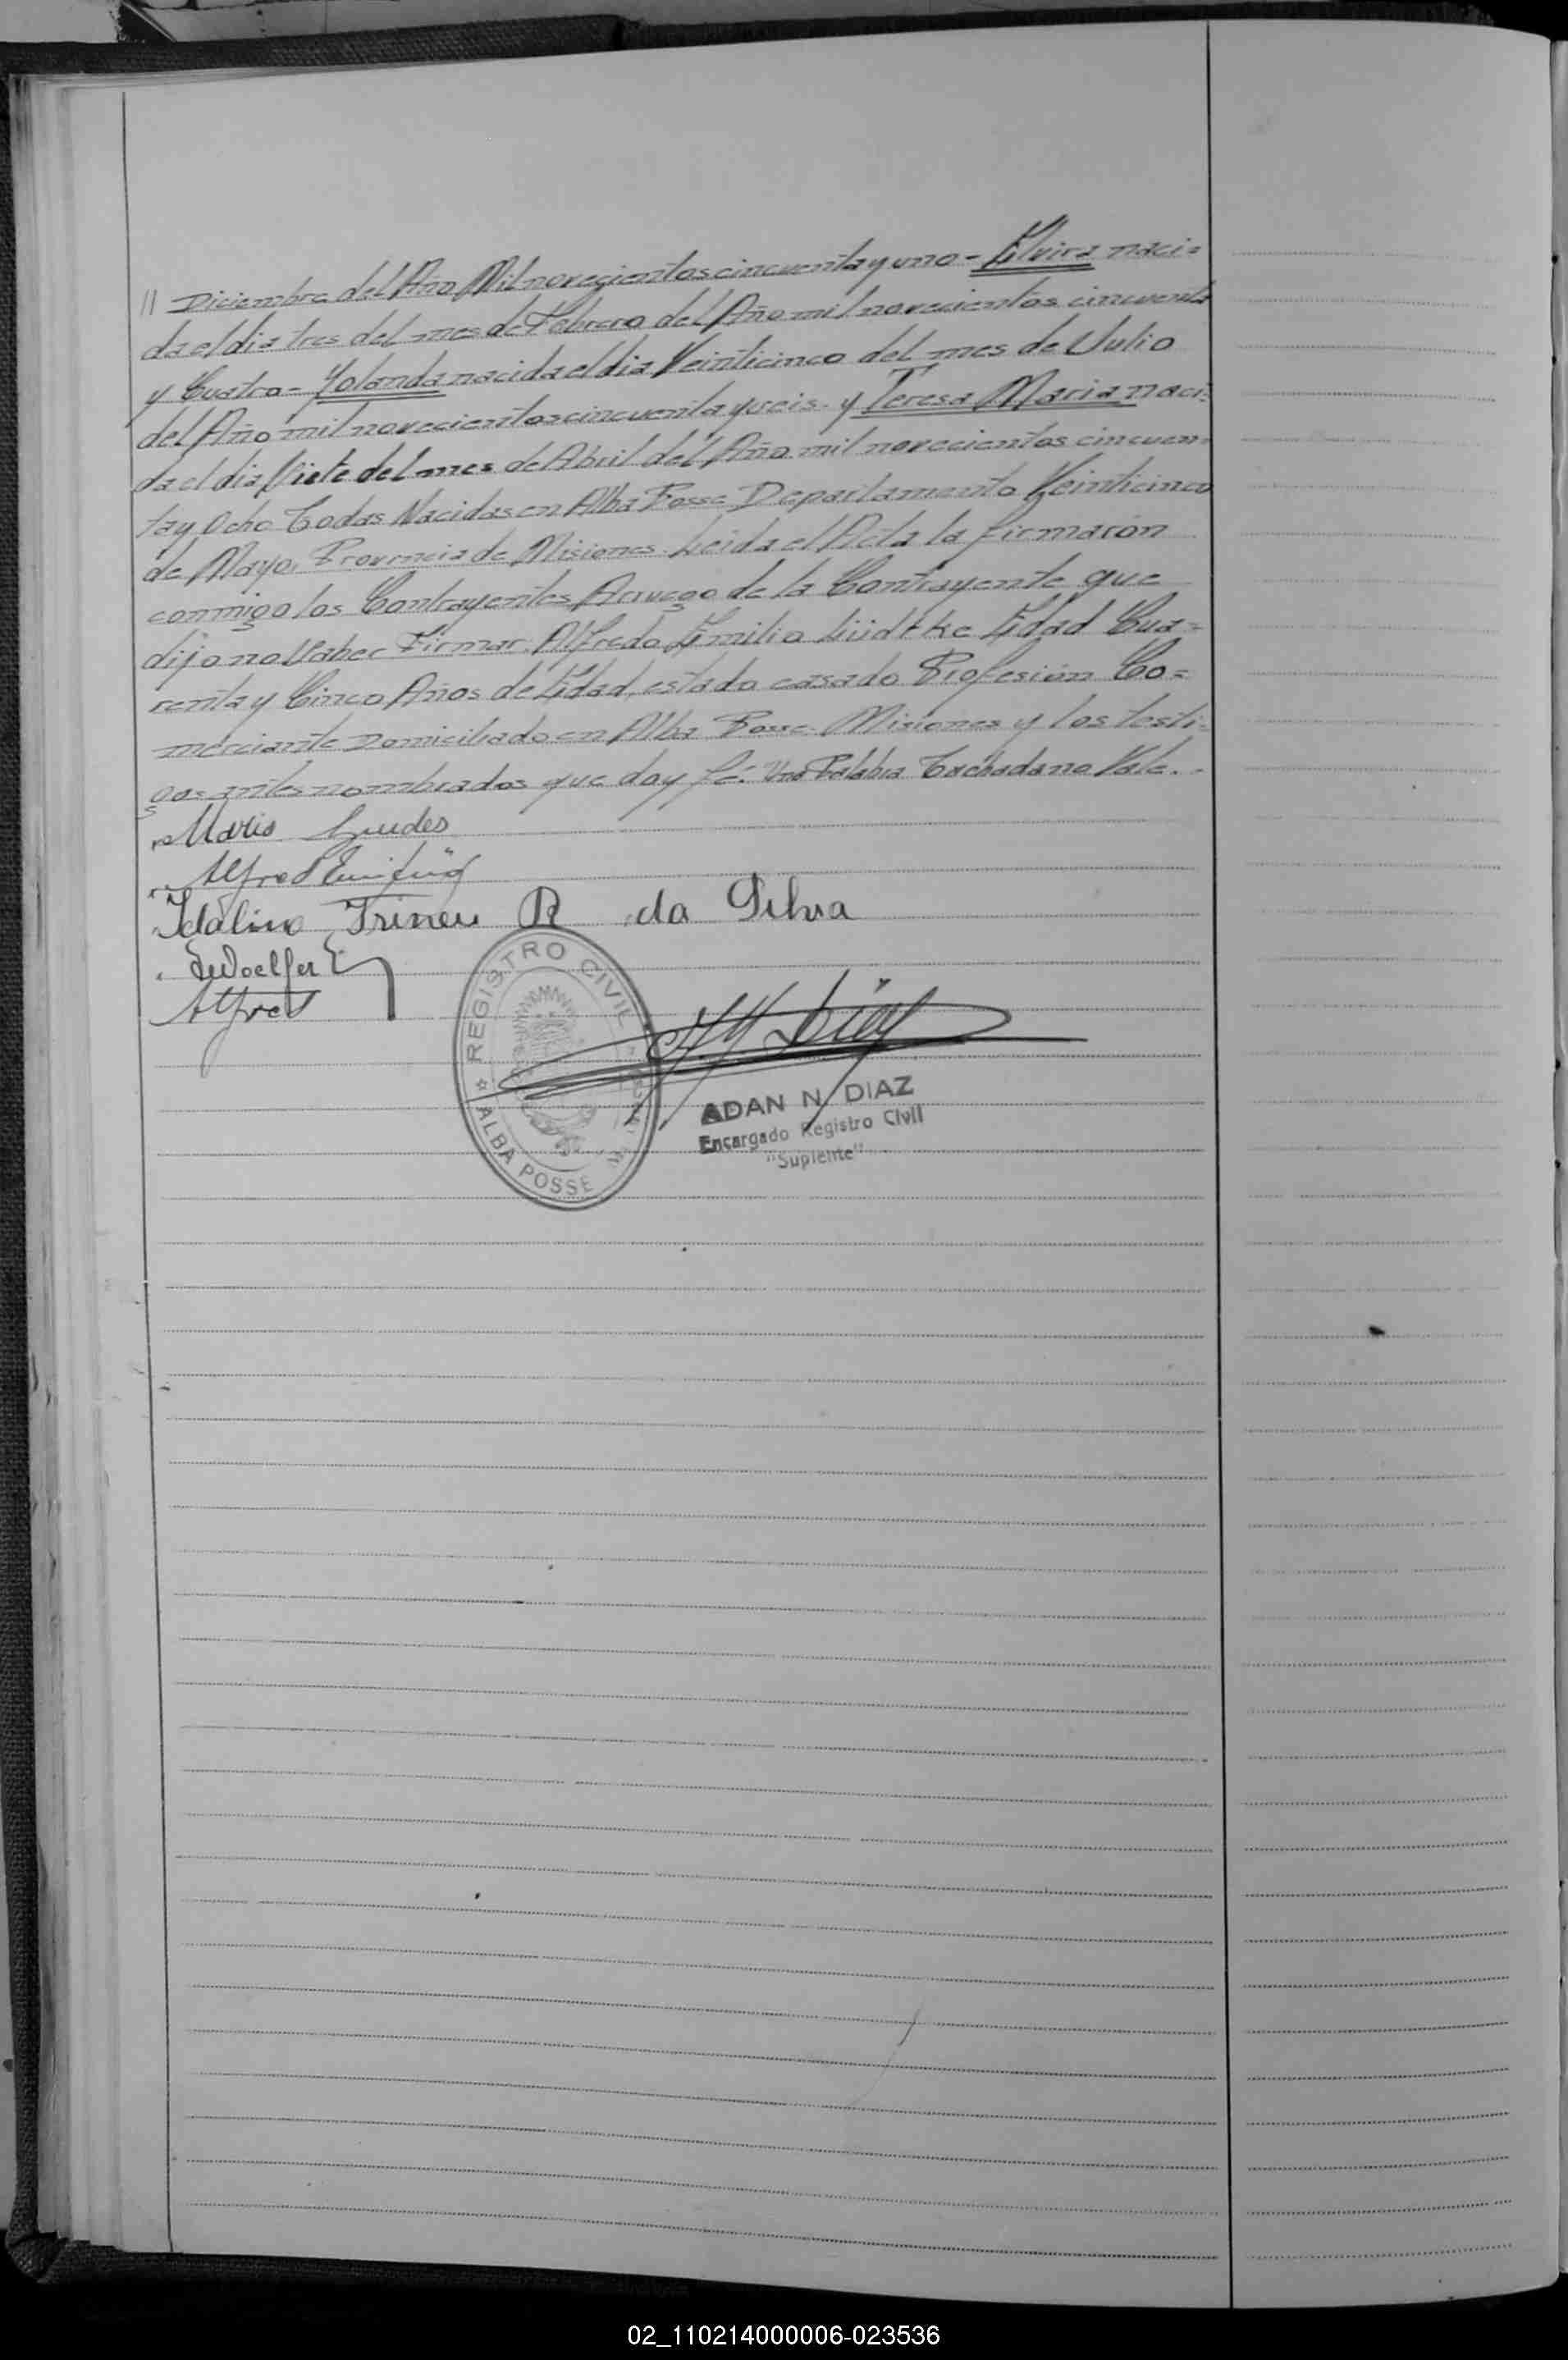 // Diciembre del Año Mil novecientos cincuenta y uno - Elvira naci=
da el dia tres del mes de Febrero del Año mil novecientos cincuenta
y Cuatro - Yolanda nacida el dia Veinticinco del mes de Julio
del Año mil novecientos cincuenta y seis. y Teresa Maria naci=
da el dia Siete del mes de Abril del Año mil novecientos cincuen=
ta y Ocho Todas Nacidas en Alba Posse Departamento Veinticinco
de Mayo, Provincia de Misiones. Leida el Acta la firmarón
conmigo los Contrayentes Aruego de la Contrayente que
dijo no Saber Firmar. Alfredo Emilio Lüdtke Edad Cua=
renta y Cinco Años de Edad, estado casado Profesión Co=
merciante Domiciliado en Alba Posse - Misiones y los testi=
gos antes nombrados que doy fé. Una Palabra Tachada no Vale. -
Mario Guedes
Alfred
Idalino Irineu R da Silva
Woelfer
Alfred
REGISTRO CIVIL
ALBA POSSE
ADAN N. DIAZ
Encargado Registro Civil
"Suplente"
02_110214000006-023536